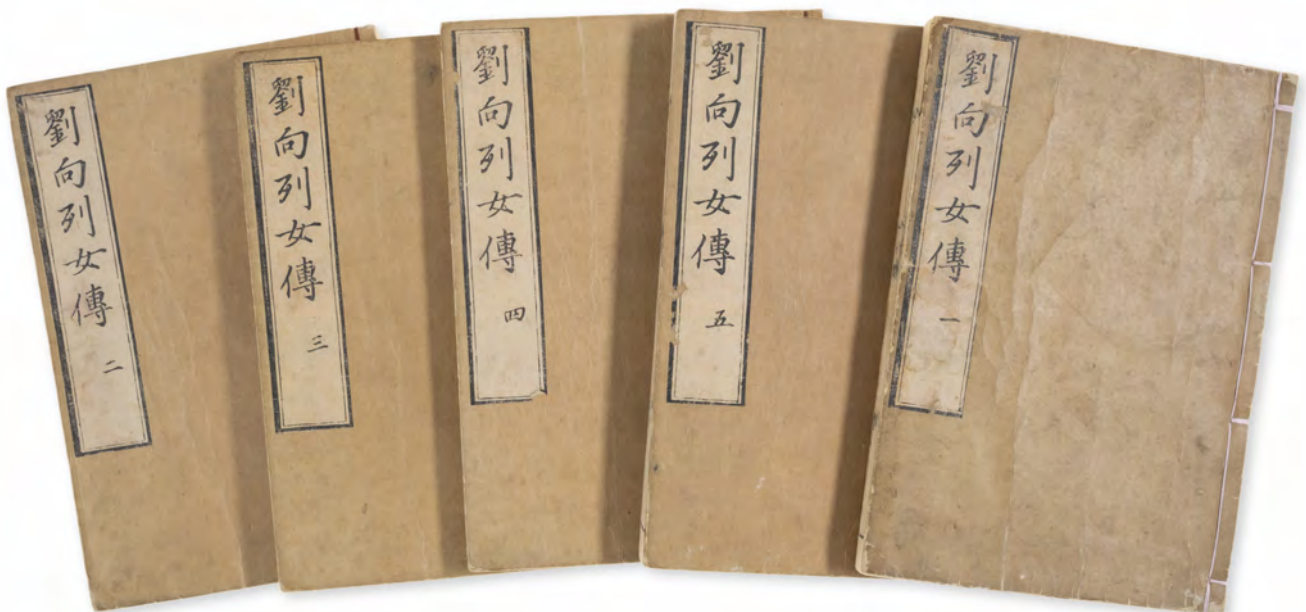 劉向列女傳 二
劉向列女傳 三
劉向列女傳 四
劉向列女傳 五
劉向列女傳 一